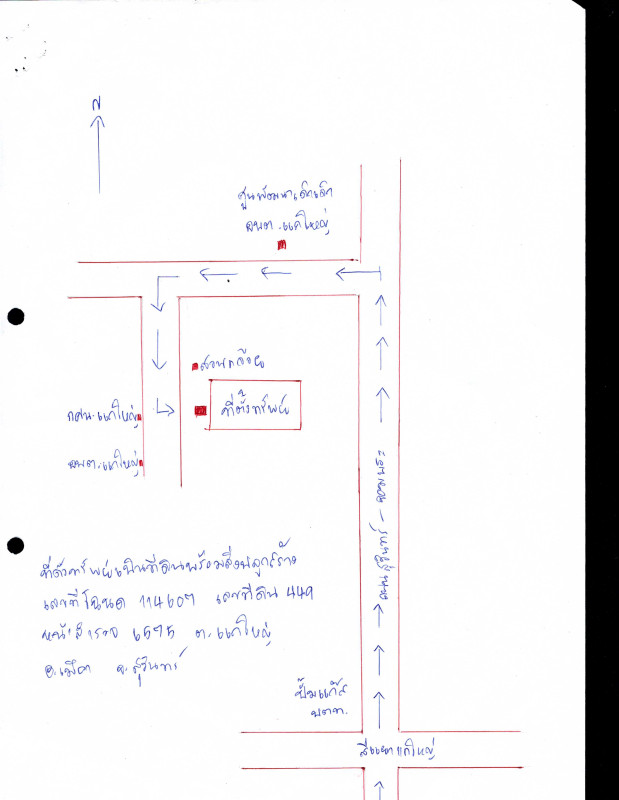 N
ศูนพัฒนาเด็กเล็ก
อบต.แกใหญ่
สวนกล้วย
ที่ตั้งทรัพย์
กศน.แกใหญ่
อบต.แกใหญ่
ถนนสุรินทร์ - จอมพระ
ที่ตั้งทรัพย์เป็นที่ดินพร้อมสิ่งปลูกสร้าง
เลขที่โฉนด 114607 เลขที่ดิน 449
หน้าสำรวจ 6595 ต.แกใหญ่
อ.เมือง จ.สุรินทร์
ปั๊มแก๊ส
ปตท.
สี่แยกแกใหญ่